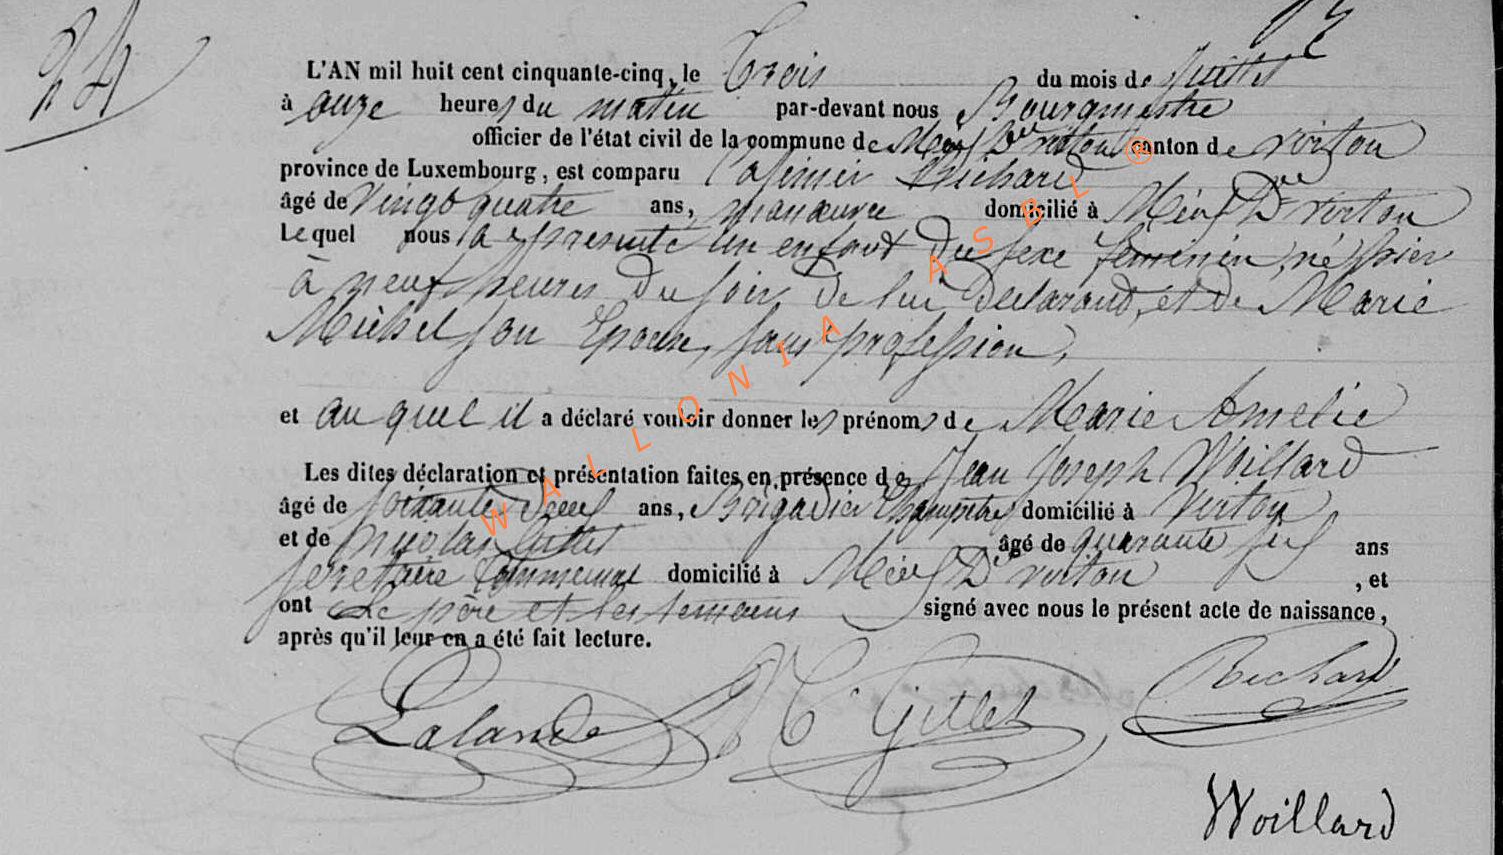 24
L'AN mil huit cent cinquante-cinq, le Trois du mois de Juillet
à onze heures du matin par-devant nous Bourgmestre
officier de l'état civil de la commune de Meix Dt virton canton de virton
province de Luxembourg, est comparu Casimir Richard
âgé de vingt quatre ans, manœuvre domicilié à Meix Dt virton
Lequel nous a présenté un enfant du sexe femenin, né hier
à neuf heures du soir, de lui déclarant, et de Marie
Michel son Epouse, sans profession,
et auquel il a déclaré vouloir donner les prénoms de Marie Amelie
Les dites déclaration et présentation faites en présence de Jean Joseph Woillard
âgé de soixante deux ans, Brigadier Champêtre domicilié à Virton
et de Nicolas Gillet âgé de quarante six ans
secretaire Communal domicilié à Meix Dt virton , et
ont Le père et les temoins signé avec nous le présent acte de naissance,
après qu'il leur en a été fait lecture.
Lalande N Gillet Richard
Woillard
WALLONIA ASBL ®